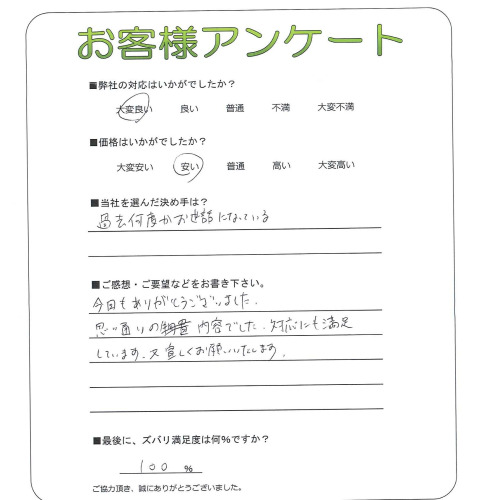 お客様アンケート
■弊社の対応はいかがでしたか？
大変良い 良い 普通 不満 大変不満
■価格はいかがでしたか？
大変安い 安い 普通 高い 大変高い
■当社を選んだ決め手は？
過去何度かお世話になっている
■ご感想・ご要望などをお書き下さい。
今回もありがとうございました。
思い通りの内容でした。対応にも満足
しています。又宜しくお願いいたします。
■最後に、ズバリ満足度は何%ですか？
100 %
ご協力頂き、誠にありがとうございました。